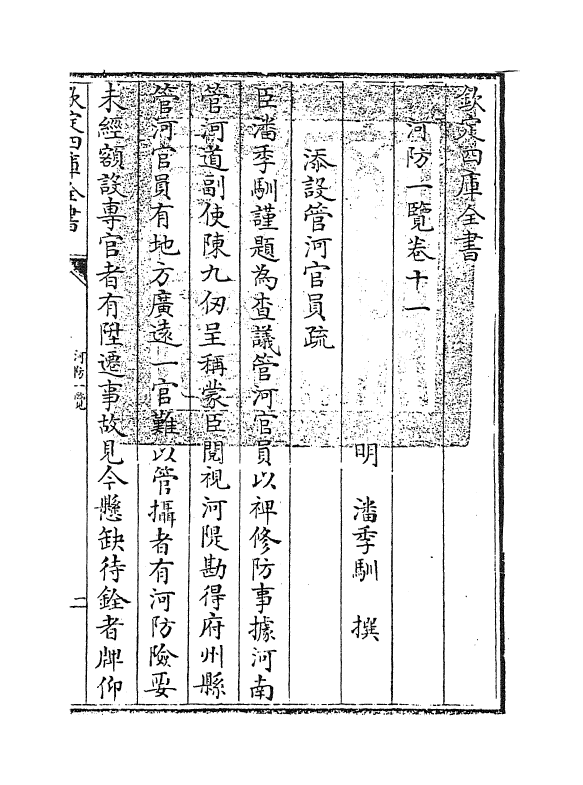 欽定四庫全書
河防一覽卷十一
明　潘季馴　撰
添設管河官員疏
臣潘季馴謹題為查議管河官員以裨修防事據河南
管河道副使陳九仞呈稱蒙臣閱視河隄勘得府州縣
管河官員有地方廣遠一官難以管攝者有河防險要
未經額設專官者有陞遷事故見今懸缺待銓者牌仰
欽定四庫全書
河防一覽
二